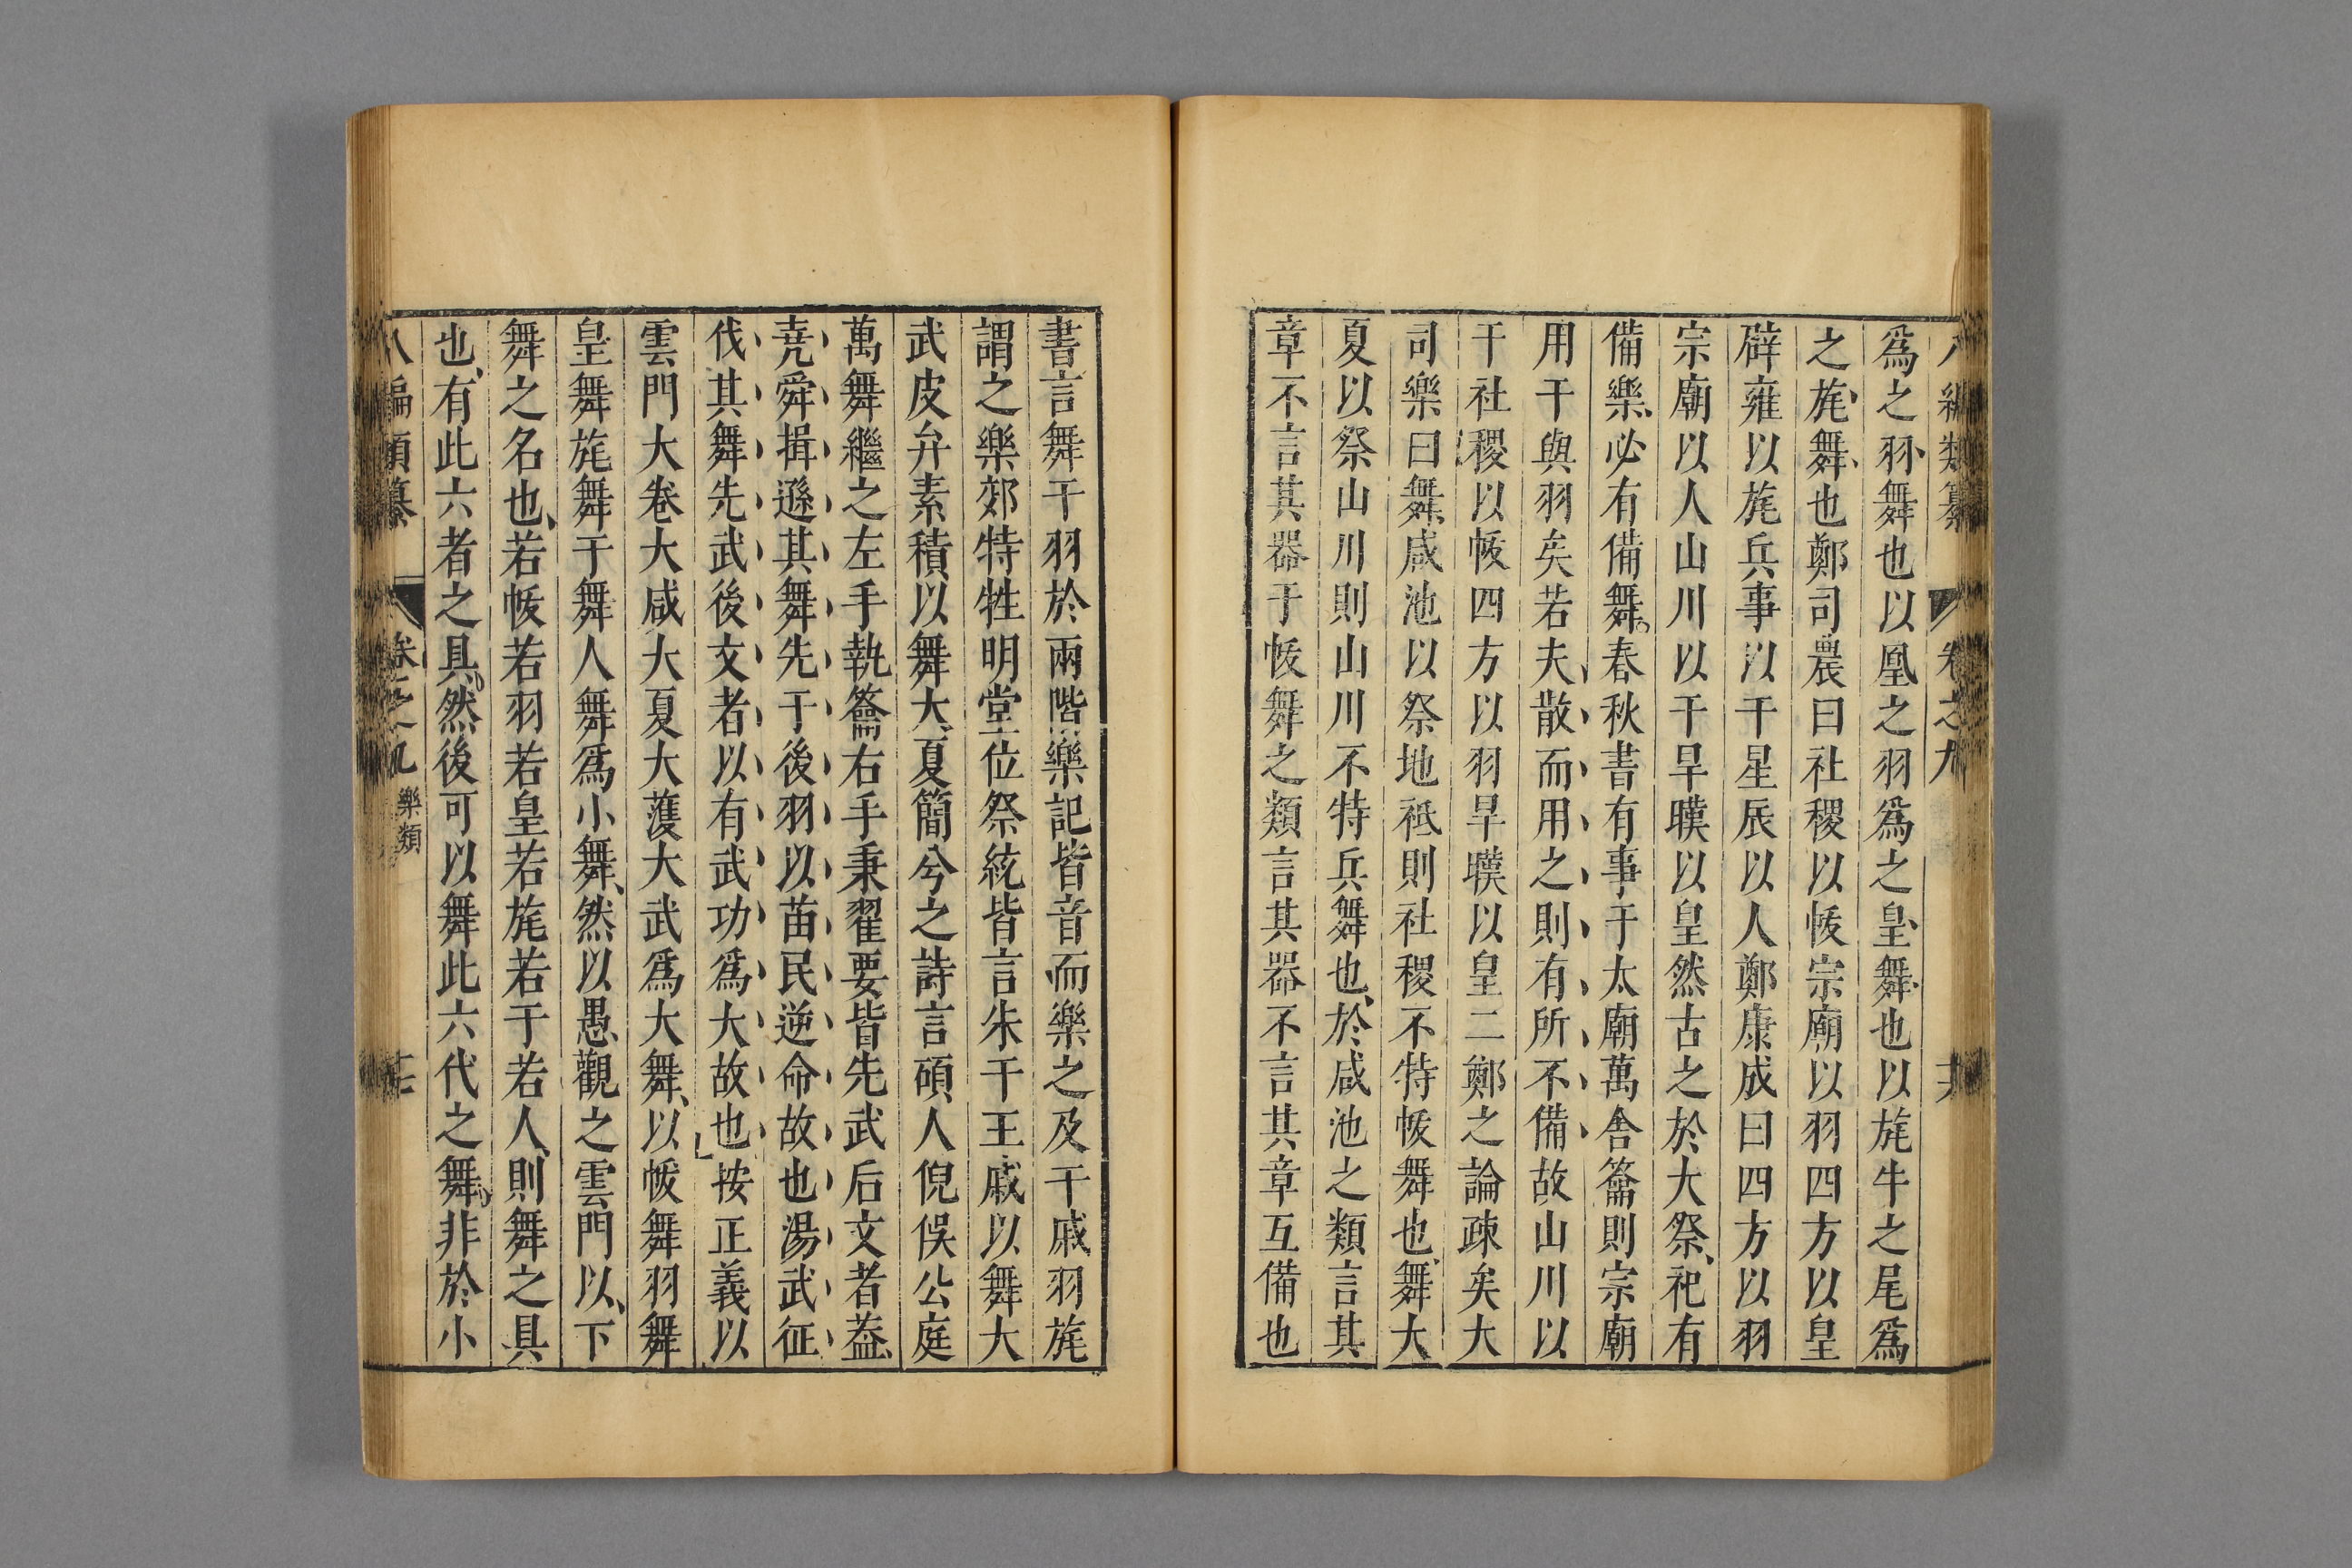 八編類纂 卷之九 十六
爲之羽舞也以凰之羽爲之皇舞也以旄牛之尾爲
之旄舞也鄭司農曰社稷以帗宗廟以羽四方以皇
辟雍以旄兵事以干星辰以人鄭康成曰四方以羽
宗廟以人山川以干旱暵以皇然古之於大祭祀有
備樂必有備舞春秋書有事于太廟萬舎籥則宗廟
用干與羽矣若夫散而用之則有所不備故山川以
干社稷以帗四方以羽旱暵以皇二鄭之論疎矣大
司樂曰舞咸池以祭地祗則社稷不特帗舞也舞大
夏以祭山川則山川不特兵舞也於咸池之類言其
章不言其器于帗舞之類言其器不言其章互備也
書言舞干羽於兩階樂記皆音而樂之及干戚羽旄
謂之樂郊特牲明堂位祭統皆言朱干玉戚以舞大
武皮弁素積以舞大夏簡兮之詩言碩人俁俁公庭
萬舞繼之左手執籥右手秉翟要皆先武后文者葢
尭舜揖遜其舞先干後羽以苗民逆命故也湯武征
伐其舞先武後文者以有武功爲大故也按正義以
雲門大卷大咸大夏大濩大武爲大舞以帗舞羽舞
皇舞旄舞干舞人舞爲小舞然以愚觀之雲門以下
舞之名也若帗若羽若皇若旄若干若人則舞之具
也有此六者之具然後可以舞此六代之舞非於小
八編類纂 卷之九 樂類 十七